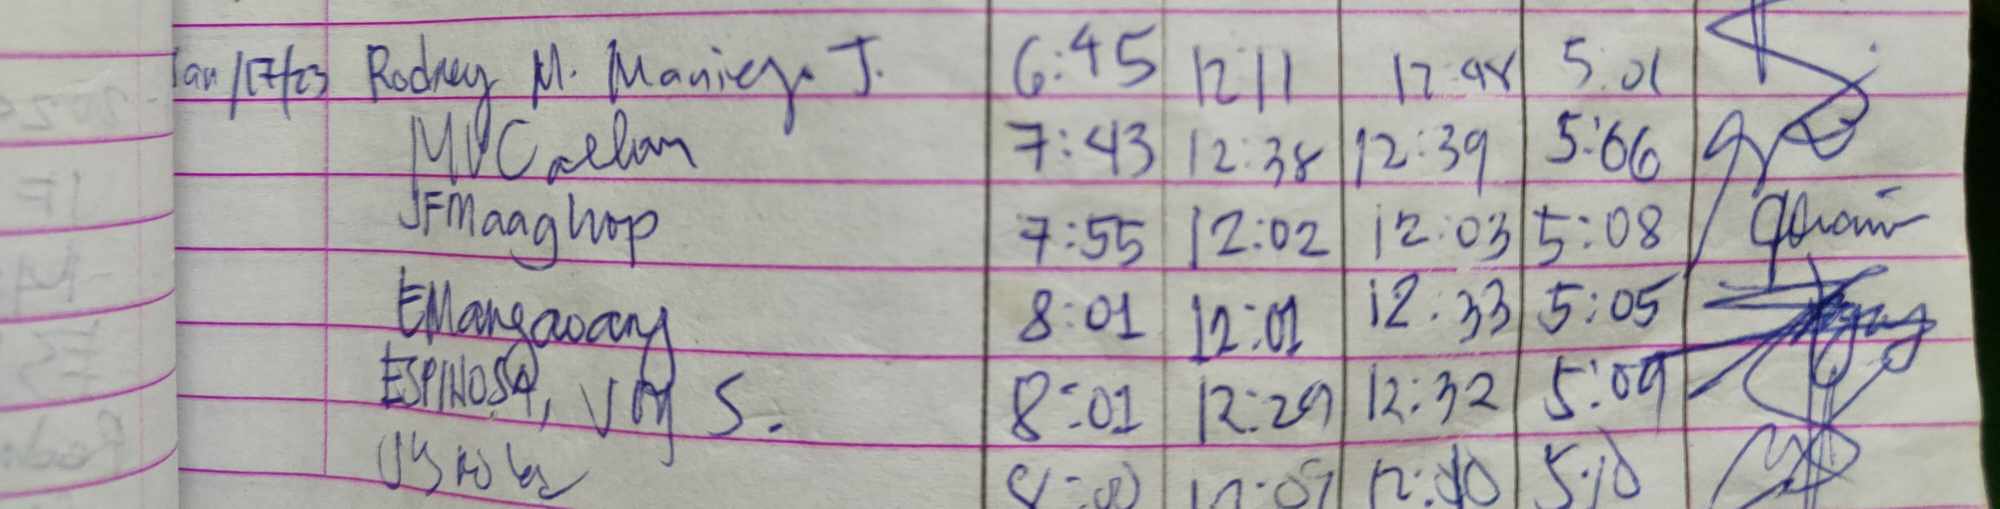 Jan/17/23 Rodney M. Maniego J. 6:45 12:11 12:48 5:01
MVCaelian 7:43 12:38 12:39 5:06
JFMaaghop 7:55 12:02 12:03 5:08
EMangaoang 8:01 12:01 12:33 5:05
ESPINOSA, VMJ S. 8:01 12:29 12:32 5:09
8:00 12:09 12:10 5:10